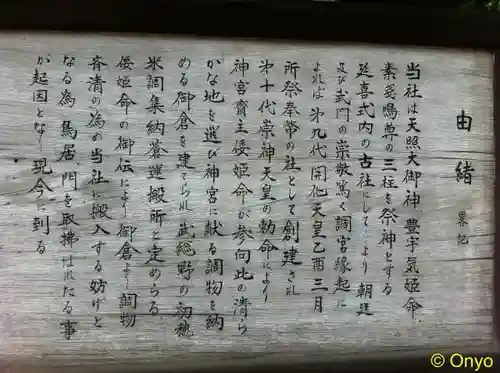 由緒 畧記
当社は天照大御神、豊宇気姫命、
素盞嗚尊の三柱を祭神とする
延喜式内の古社にしてより朝廷
及び武門の崇敬篤く調宮縁起に
よれば第九代開化天皇乙酉三月
所祭奉幣の社として創建され
第十代崇神天皇の勅命により
神宮斎主倭姫命が参向此の清ら
かな地を選び神宮に献る調物を納
める御倉を建てられ武総野の初穂
米調集納蒼運搬所と定めらる
倭姫命の御伝により御倉より調物
斉清の為め当社に搬入する妨げと
なる為鳥居、門を取拂はれたる事
が起因となり現今に到る
© Onyo